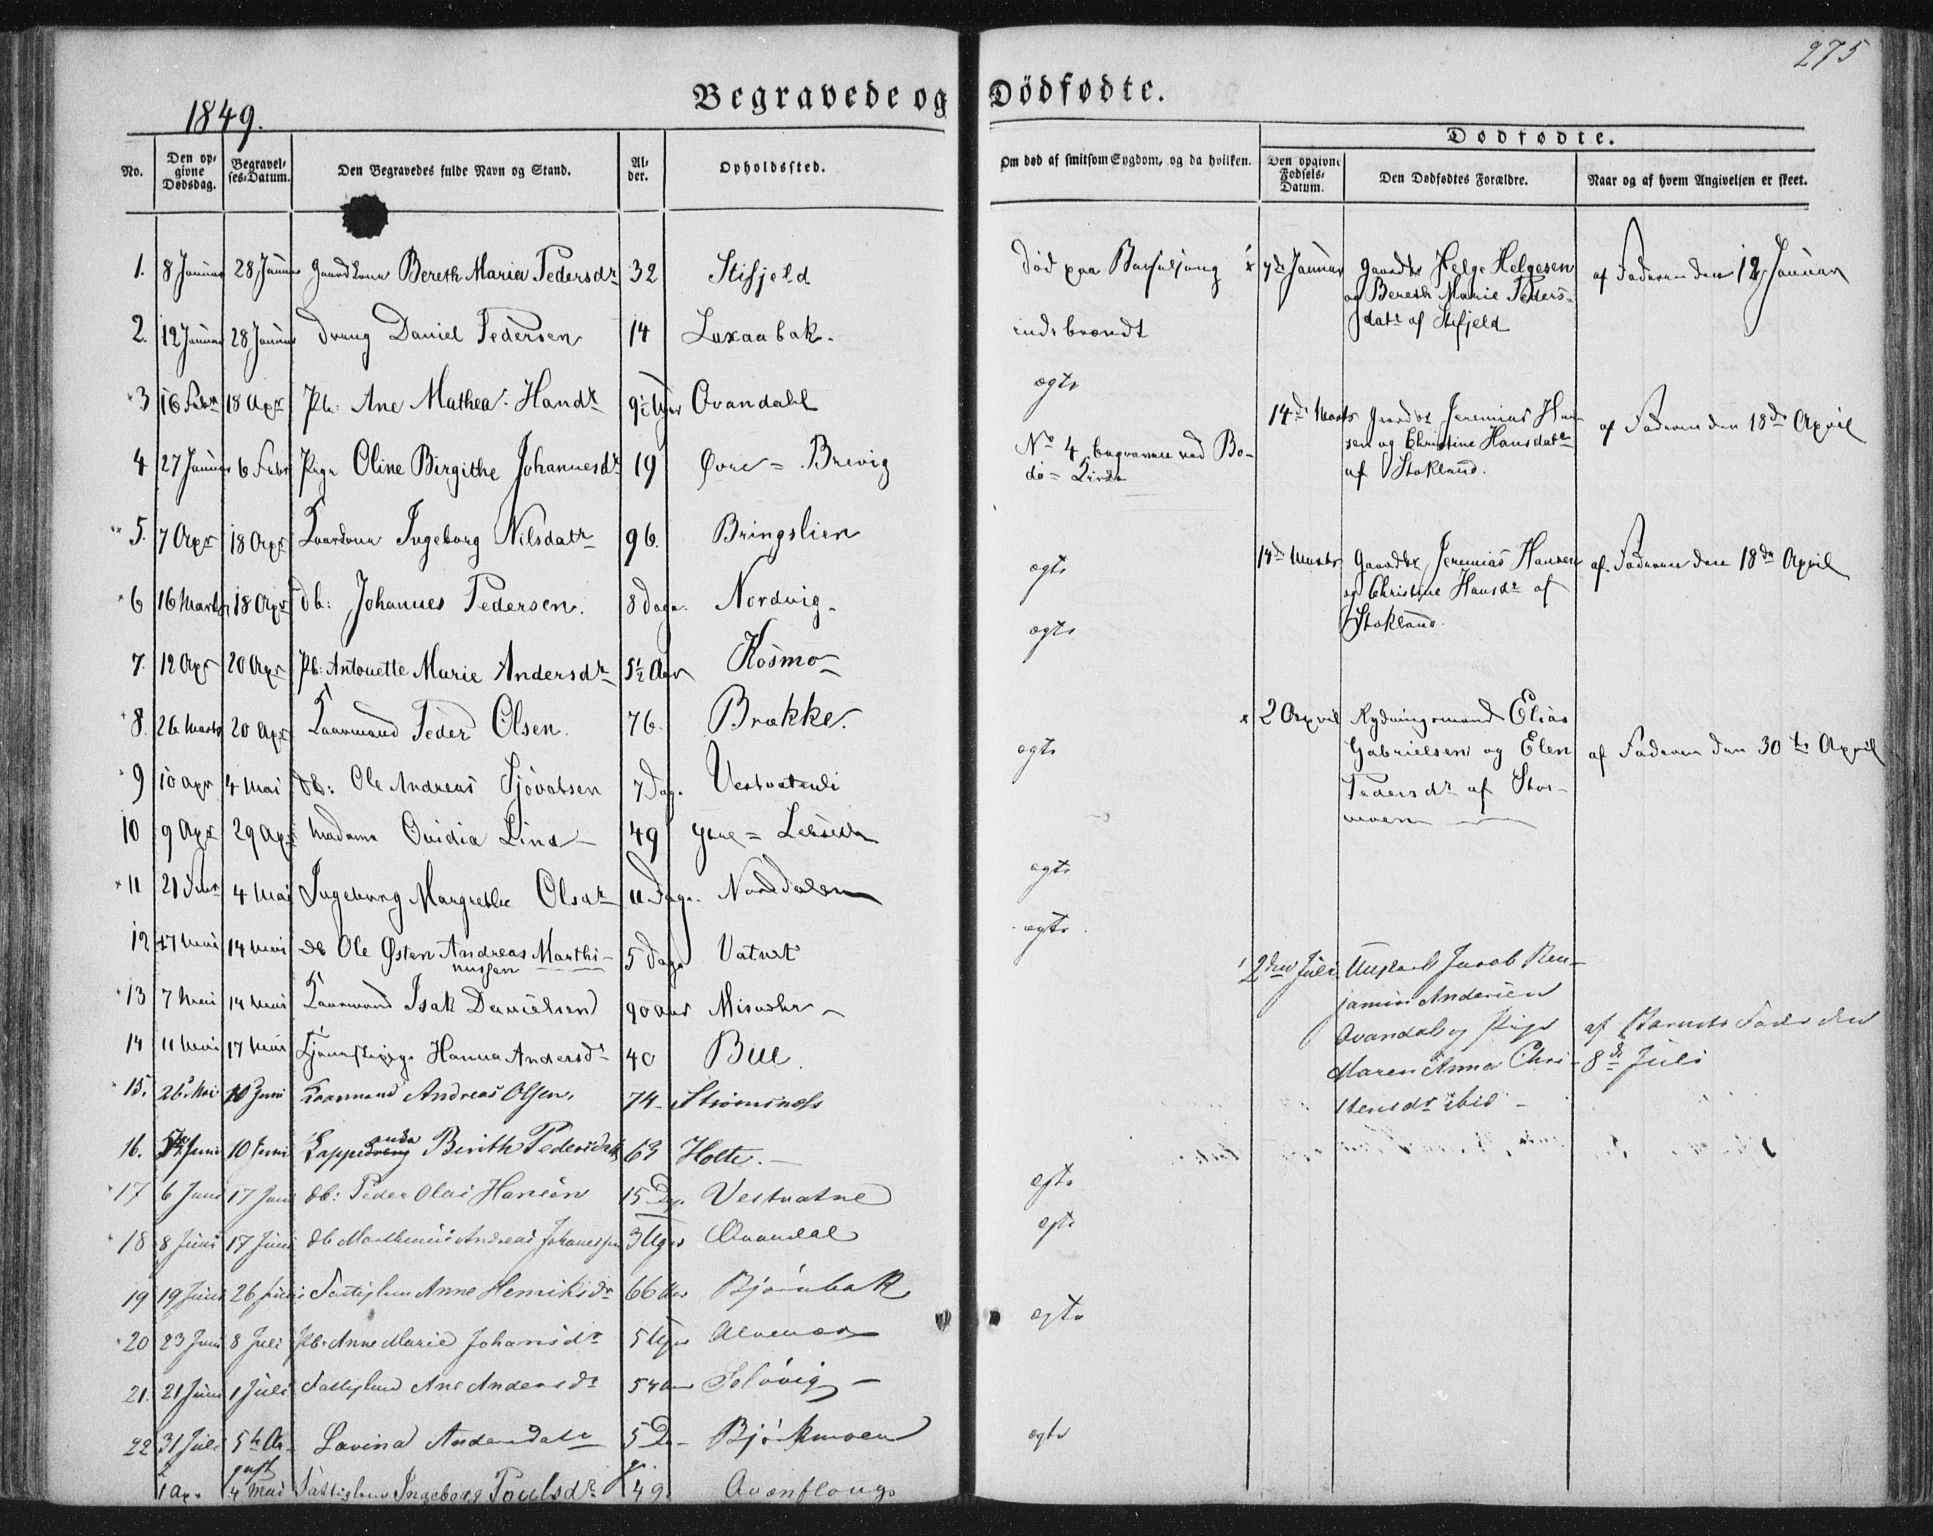 275
Begravede og Dödfødte.
1849.
Dødfødte.
No.
Den opgivne Dødsdag.
Begravelses-Datum.
Den Begravedes fulde Navn og Stand.
Alder.
Opholdssted.
Om død af smitsom Sygdom, og da hvilken.
Den opgivne Fødsels-Datum.
Den Dødfødtes Forældre.
Naar og af hvem Angivelsen er skeet.
1. 8 Januar 28 Januar Gaardkone Bereth Maria Pedersdr 32 Stifjeld
2. 12 Januar 28 Januar Dreng Daniel Pedersen 14 Laxaabak.
3 16 Febr 18 Apr Pb: Ane Mathea Hansdr Qvandahl
4 27 Januar 6 Febr Pige Oline Birgithe Johannesdr 19 Øvre = Brevig
5. 7 Apr 18 Apr Ingeborg Nilsdatr 96. Bringslien
6 16 Marts 18 Apr Db: Johannes Pedersen. 8 Dage. Nordvig.
7. 12 Apr 20 Apr Pb: Antonette Marie Andersdr 5½ Aar Kosmo
8. 26 Marts 20 Apr Kaarmand Peder Olsen. 76. Brække.
9 10 Apr 4 Mai Db: Ole Andreas Sjóvatsen 7 Dag.
10 9 Apr 29 Apr Madame Ovidia Lind 49
11 21 4 Mai Ingeborg Margrethe Olsdr 11 Dage. Norddalen
12 17 Mai 14 Mai Db Ole Østen Andreas Marthi-
nussen 5 Dage Vatnet
13 7 Mai 14 Mai Kaarmand Isak Danielsen 90 Aar Misvær
14 11 Mai 17 Mai Hanna Andersdr 40 Bue.
15. 26 Mai 10 Juni Kaarmand Andreas Olsen. 74 Strömsnæs
16. 5 Juni 10 Juni Lappe Berith Pedersdatr 63 Holte.
17 6 Juni 17 Juni Db: Peder Olai Hansen 15 Dag. Vestvatne
18 8 Juni 17 Juni Db Marthinus Andreas Johannessen 3 Uger Qvandal
19 19 Juni 26 Juni Fattiglem Anne Henriksdr 66 Aar Bjørnbak
20 23 Juni 8 Juli Pb: Anne Marie Johansdr 5 Uger Alvenæs
21. 21 Juni 1 Juli Fattiglem Ane Andersdr 54 Aar Solóvig
22 31 Juli 5te August Lovina Andersdatr 5 D Bjórkmoen
1 Ap. 4 Mai Fattiglem Ingeborg Poulsdr 49
Død paa Barselseng
indebrændt
ægte
No 4 begraven ved Bo-
dø = Kirke
ægte
ægte
ægte
ægte
ægte
ægte
ægte
ægte
ægte
7de Januar Gaardbr Helge Helgesen
og Bereth Marie Peders-
datr af Stifjeld
af Faderen den 12 Januar
14de Marts Gaardbr Jeremias Han-
sen og Christine Hansdatr
af Stokland.
af Faderen den 18de April
14de Marts Gaardbr Jeremias Hansen
og Christine Hansdr af
Stokland.
af Faderen den 18de April
2 April Rydningsmand Elias
Gabrielsen og Elen
Pedersdr af Stor-
moen
af Faderen den 30te April
2den Juli Ungkarl Jacob Ben-
jamin Andersen
Qvandal og Pige
Maren Anna Chri-
stensdr ibid
af Barnets Fader den
8de Juli